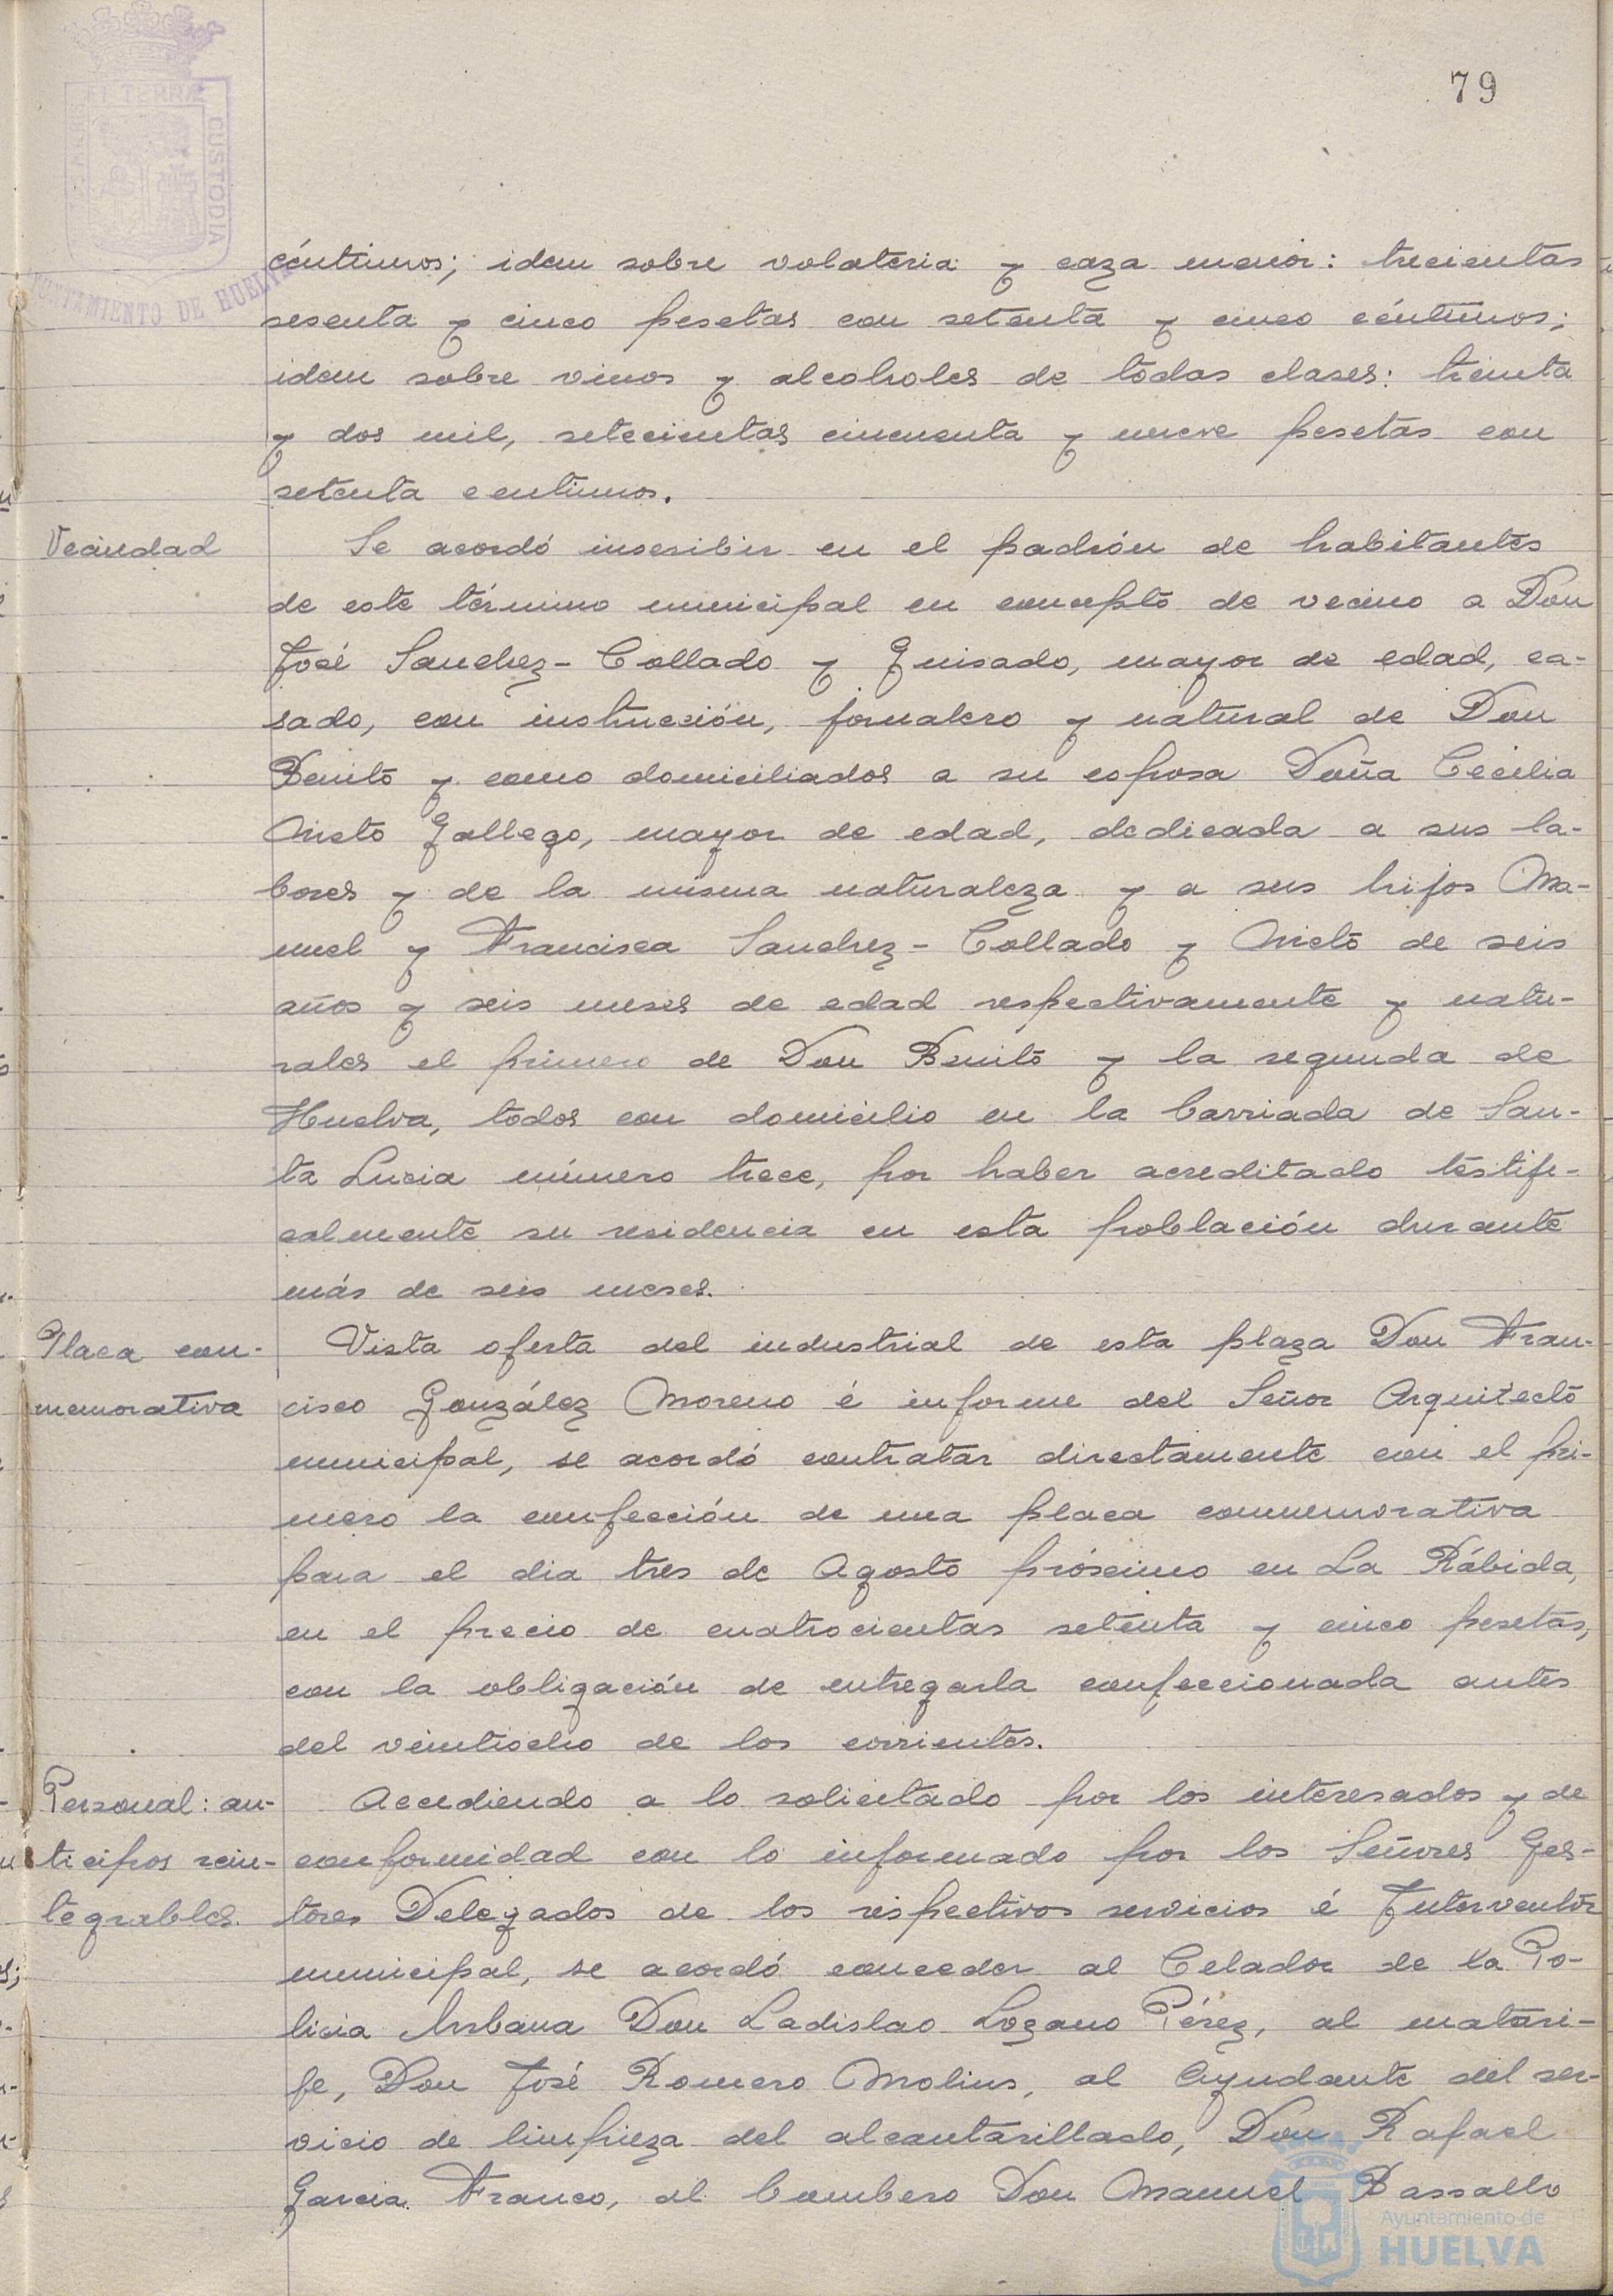 79
PORTUS MARIS ET TERRÆ CUSTODIA
AYUNTAMIENTO DE HUELVA
céntimos; idem sobre volateria y caza menor: trecientas
sesenta y cinco pesetas con setenta y cinco céntimos;
idem sobre vinos y alcoholes de todas clases: treinta
y dos mil, setecientas cincuenta y nueve pesetas con
setenta centimos.
Vecindad
Se acordó inscribir en el padrón de habitantes
de este término municipal en concepto de vecino a Don
José Sanchez-Collado y Guisado, mayor de edad, ca-
sado, con instrucción, jornalero y natural de Don
Benito y como domiciliados a su esposa Doña Cecilia
Nieto Gallego, mayor de edad, dedicada a sus la-
bores y de la misma naturaleza y a sus hijos Ma-
nuel y Francisca Sanchez-Collado y Nieto de seis
años y seis meses de edad respectivamente y natu-
rales el primero de Don Benito y la segunda de
Huelva, todos con domicilio en la barriada de San-
ta Lucia número trece, por haber acreditado testifi-
calmente su residencia en esta población durante
más de seis meses.
Placa con-
memorativa
Vista oferta del industrial de esta plaza Don Fran-
cisco González Moreno é informe del Señor Arquitecto
municipal, se acordó contratar directamente con el pri-
mero la confección de una placa conmemorativa
para el dia tres de Agosto próximo en La Rábida,
en el precio de cuatrocientas setenta y cinco pesetas,
con la obligación de entregarla confeccionada antes
del veintiocho de los corrientes.
Personal: an-
ticipos rein-
tegrables.
Accediendo a lo solicitado por los interesados y de
conformidad con lo informado por los Señores Ges-
tores Delegados de los respectivos servicios é Interventor
municipal, se acordó conceder al Celador de la Po-
licia Urbana Don Ladislao Lozano Pérez, al matari-
fe, Don José Romero Molins, al Ayudante del ser-
vicio de limpieza del alcantarillado, Don Rafael
Garcia Franco, al bombero Don Manuel Bassallo
Ayuntamiento de
HUELVA